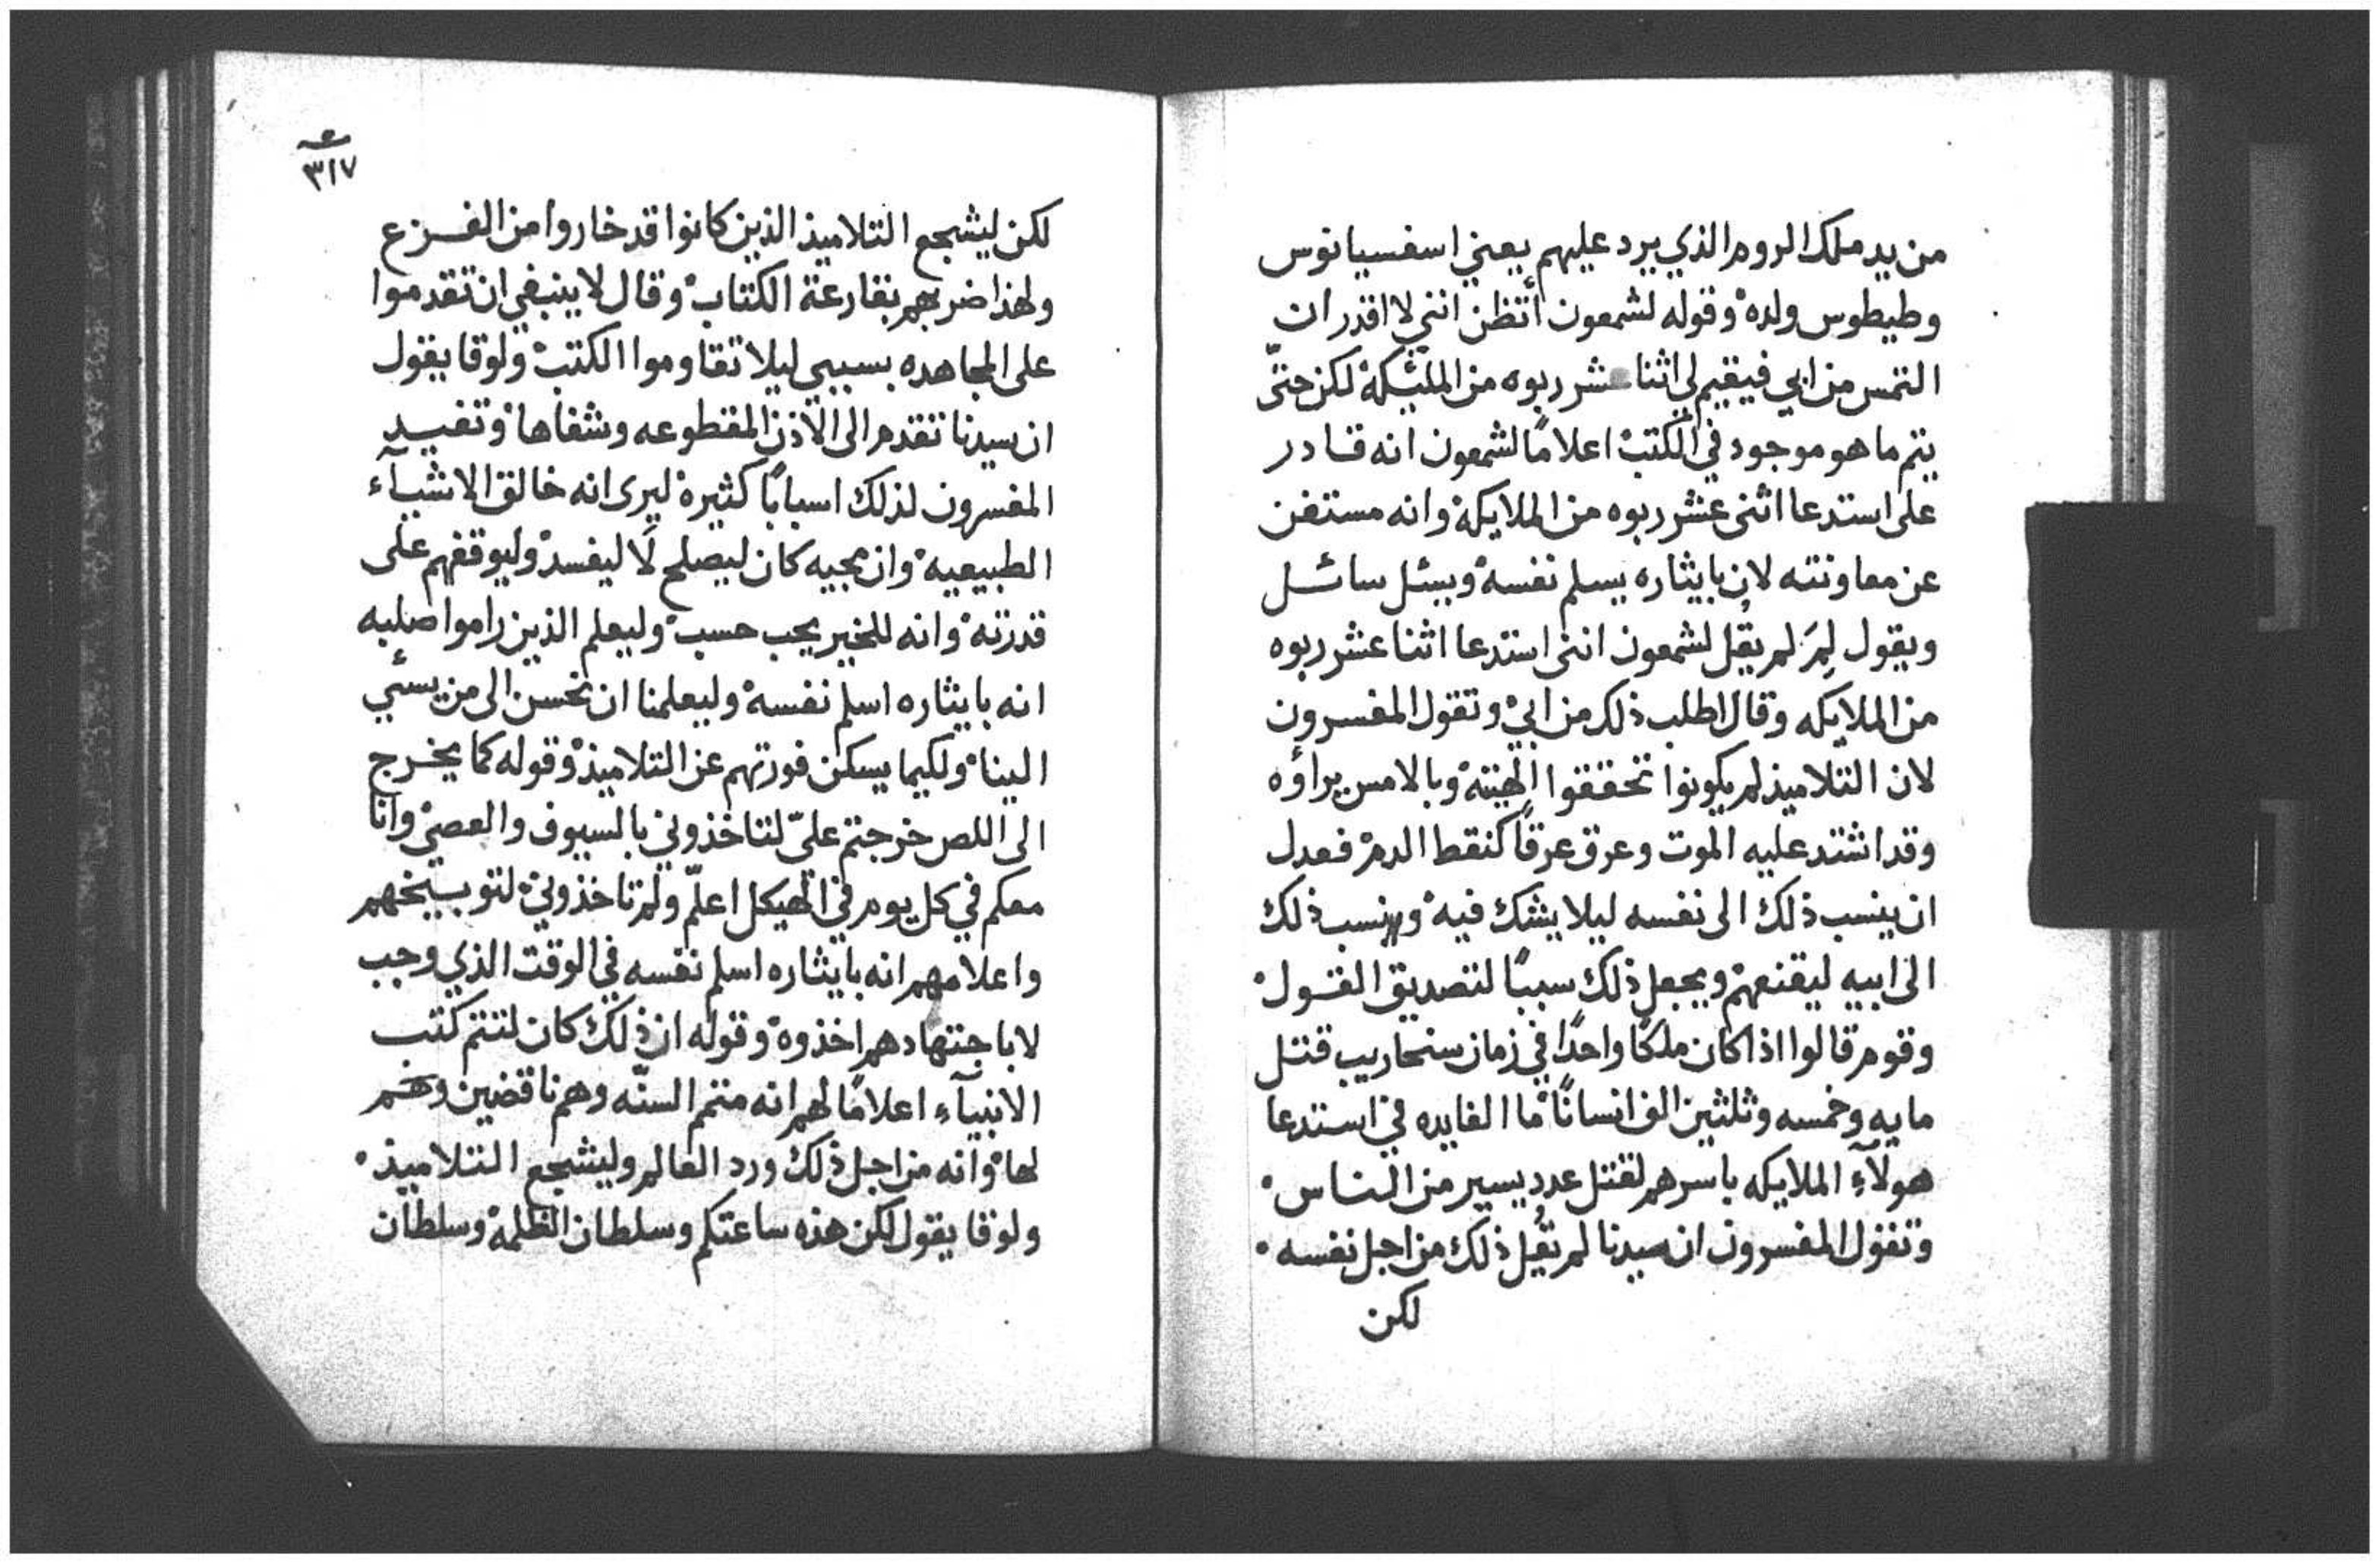 من يد ملك الروم الذي يرد عليهم يعني اسفسيانوس
وطيطوس ولده وقوله لشمعون أتظن انني لا اقدر ان
التمس من ابي فيقيم لي اثنا عشر ربوه من الملئكة لكن حتّى
يتم ما هو موجود في الكتب اعلامًا لشمعون انه قادر
على استدعا اثنى عشر ربوه من الملايكة وانه مستغن
عن معاونته لان بايثاره يسلم نفسه ويسئل سائل
ويقول لِمَ لم يقُل لشمعون انني استدعا اثنا عشر ربوه
من الملايكه وقال اطلب ذلك من ابي وتقول المفسرون
لان التلاميذ لم يكونوا تحققوا الهيته وبالامس يراؤه
وقد اشتد عليه الموت وعرق عرقًا كنقط الدم فعدل
ان ينسب ذلك الى نفسه ليلا يشك فيه ونسب ذلك
الى ابيه ليقنعهم ويجعل ذلك سببًا لتصديق القول
وقوم قالوا اذا كان ملكًا واحدًا في زمان سنحاريب قتل
مايه وخمسه وثلثين الف انسانًا ما الفايده في استدعا
هولآءِ الملايكه باسرهم لقتل عدد يسير من الناس
وتقول المفسرون ان سيدنا لم يقُل ذلك من اجل نفسه
لكن
ع
٣١٧
لكن ليشجع التلاميذ الذين كانوا قد خاروا من الفزع
ولهذا ضربهم بقارعة الكتاب وقال لا ينبغي ان تقدموا
على المجاهده بسببي ليلا تقاوموا الكتب ولوقا يقول
ان سيدنا تقدم الى الاذن المقطوعه وشفاها وتفيد
المفسرون لذلك اسبابًا كثيرة ليرى انه خالق الاشيآء
الطبيعيه وان مجيه كان ليصلح لا ليفسد وليوقفهم على
قدرته وانه للخير يحب حسب وليعلم الذين راموا صلبه
انه بايثاره اسلم نفسه وليعلمنا ان نحسن الى من يسئي
الينا ولكيما يسكن فورتهم عن التلاميذ وقوله كما يخرج
الى اللص خرجتم عليّ لتاخذوني بالسيوف والعصي وانا
معكم في كل يوم في الهيكل اعلّم ولم تاخذوني لتوبيخهم
واعلامهم انه بايثاره اسلم نفسه في الوقت الذي وجب
لا باجتهادهم اخذوه وقوله ان ذلك كان لتتم كتب
الانبيآء اعلامًا لهم انه متمم السنّه وهم ناقضين وهم
لها وانه من اجل ذلك ورد العالم وليشجع التلاميذ
ولوقا يقول لكن هذه ساعتكم وسلطان الظلمة وسلطان